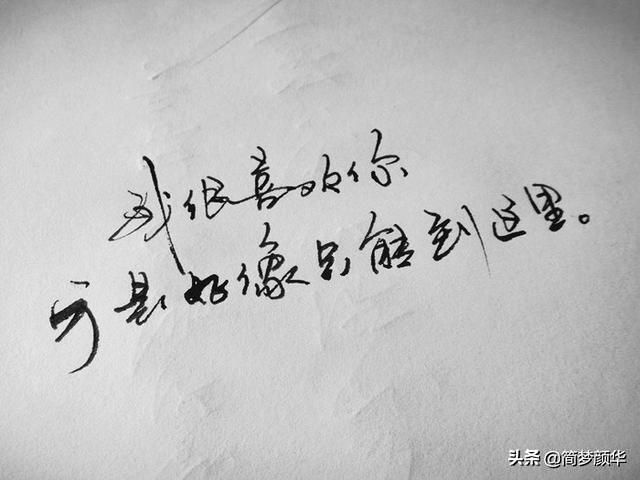 我很喜欢你
可是好像只能到这里。
头条 @简梦颜华